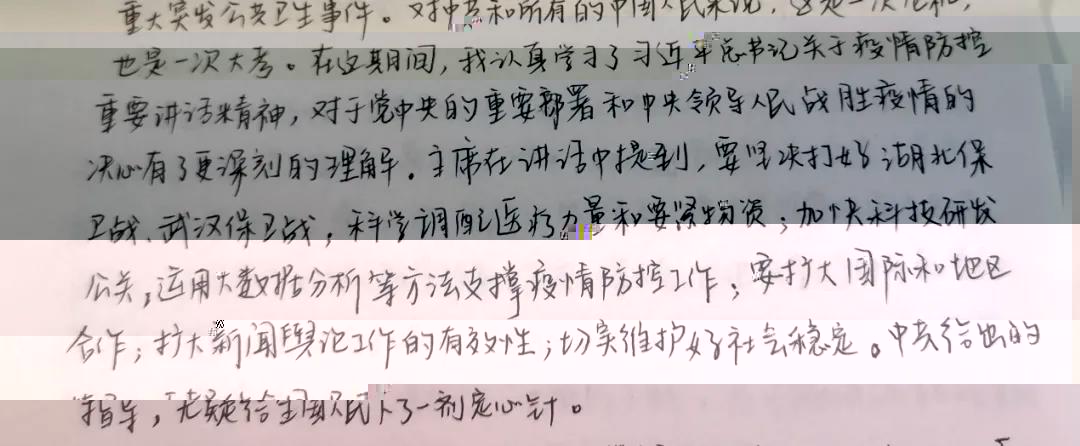 重大突发公共卫生事件。对中共和所有的中国人民来说，这是一次危机，
也是一次大考。在这期间，我认真学习了习近平总书记关于疫情防控
重要讲话精神，对于党中央的重要部署和中央领导人民战胜疫情的
决心有了更深刻的理解。主席在讲话中提到，要坚决打好湖北保
卫战、武汉保卫战；科学调配医疗力量和要紧物资；加快科技研发
公关，运用大数据分析等方法支撑疫情防控工作；要扩大国际和地区
合作；扩大新闻舆论工作的有效性；切实维护好社会稳定。中共给出的
指导，无疑给全国人民下了一剂定心针。